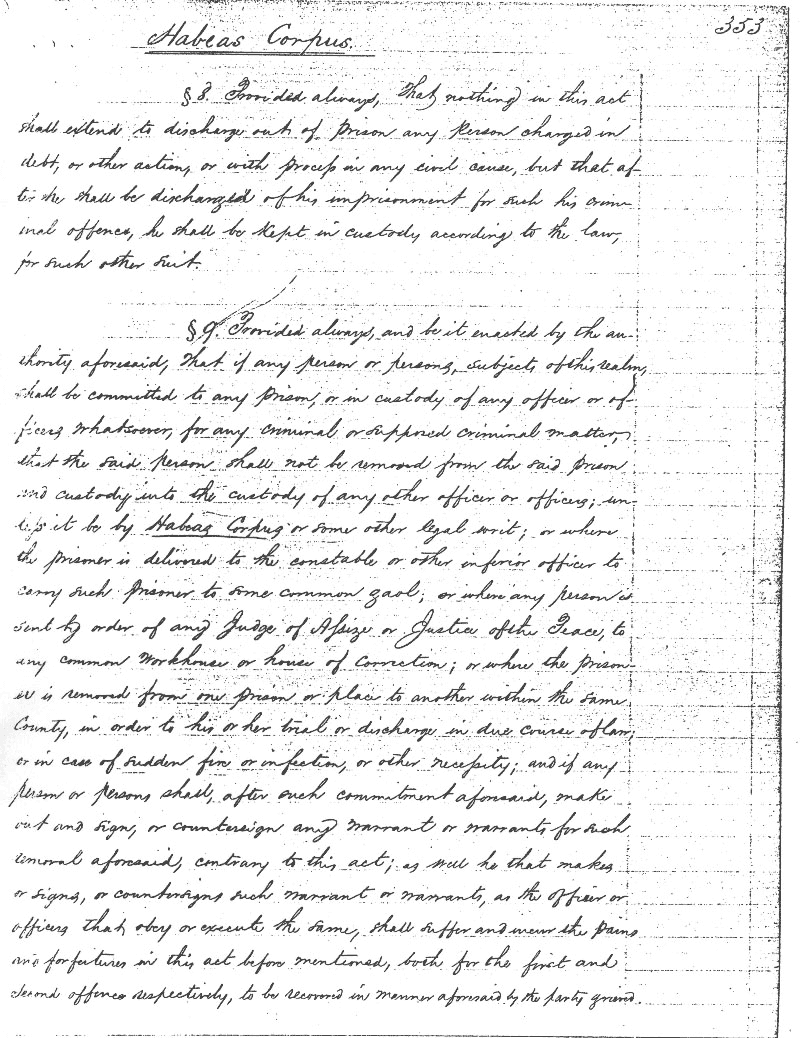 353
Habeas Corpus.
§ 8. Provided always, That nothing in this act
shall extend to discharge out of Prison any Person charged in
debt, or other action, or with process in any civil cause, but that af-
ter he shall be discharged of his imprisonment for such his crim-
inal offence, he shall be kept in custody according to the law,
for such other suit.
§ 9. Provided always, and be it enacted by the au-
thority aforesaid, That if any person or persons, subjects of this realm,
shall be committed to any Prison, or in custody of any officer or of-
ficers whatsoever, for any criminal or supposed criminal matter,
that the said person shall not be removed from the said prison
and custody into the custody of any other officer or officers; un-
less it be by Habeas Corpus or some other legal writ; or where
the prisoner is delivered to the constable or other inferior officer to
carry such prisoner to some common gaol; or where any person is
sent by order of any Judge of Assize or Justice of the Peace, to
any common workhouse or house of Correction; or where the prison-
er is removed from one prison or place to another within the same
County, in order to his or her trial or discharge in due course of law;
or in case of sudden fire or infection, or other necessity; and if any
person or persons shall, after such commitment aforesaid, make
out and sign, or countersign any warrant or warrants for such
removal aforesaid, contrary to this act; as well he that makes
or signs, or countersigns such warrant or warrants, as the officer or
officers that obey or execute the same, shall suffer and incur the pains
and forfeitures in this act before mentioned, both for the first and
second offence respectively, to be recovered in manner aforesaid by the party grieved.